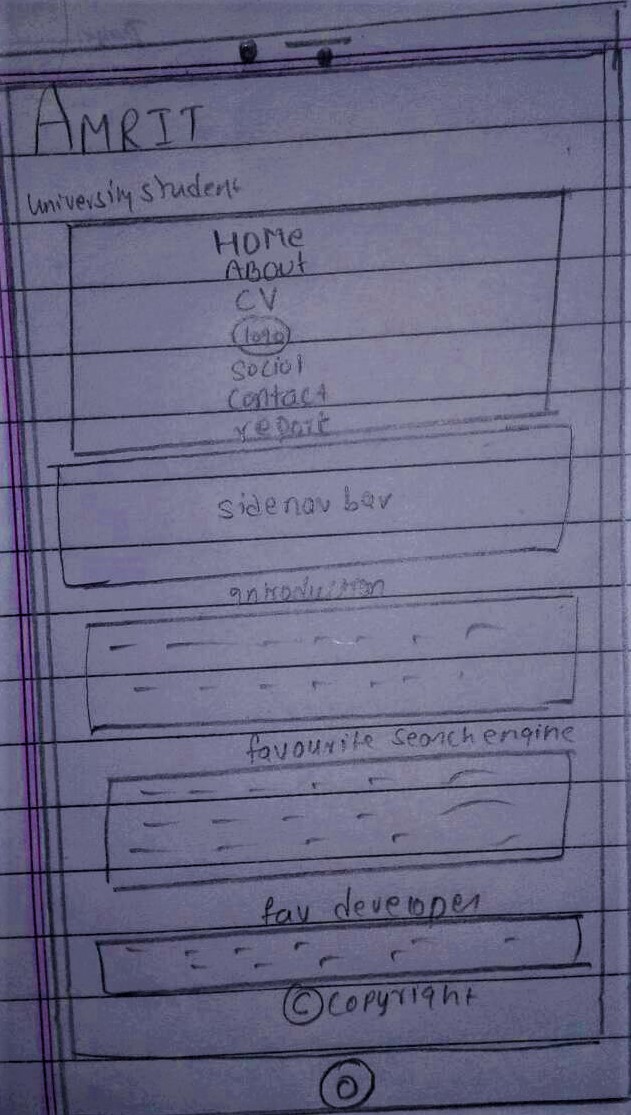 AMRIT
University student
HOMe
ABOUT
CV
logo
social
contact
report
side nav bar
introduction
favourite search engine
fav developer
© copyright